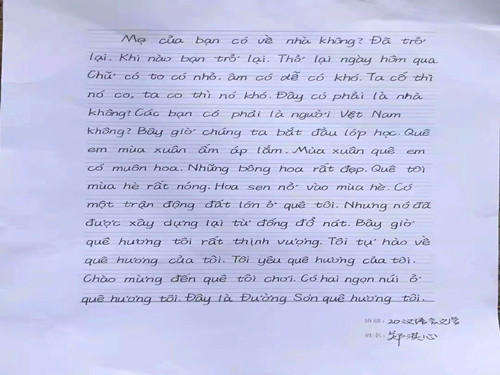 Mẹ của bạn có về nhà không? Đã trở
lại. Khi nào bạn trở lại. Thở lại ngày hôm qua
Chữ có to có nhỏ. âm có dễ có khó. Ta cố thì
nó co, ta co thì nó khó. Đây có phải là nhà
không? Các bạn có phải là người Vệt Nam
không? Bây giờ chúng ta bắt đầu lớp học. Quê
em mùa xuân ấm áp lắm. Mùa xuân quê em
có muôn hoa. Những bông hoa rất đẹp. Quê tôi
mùa hè rất nóng. Hoa sen nở vào mùa hè. Có
một trận động đất lớn ở quê tôi. Nhưng nó đã
được xây dựng lại từ đống đổ nát. Bây giờ
quê hương tôi rất thịnh vượng. Tôi tự hào về
quê hương của tôi. Tôi yêu quê hương của tôi.
Chào mừng đến quê tôi chơi. Có hai ngọn núi ở
quê hương tôi. Đây là Đường Sơn quê hương tôi.
班级: 20汉语言文学
姓名: 郑淇心